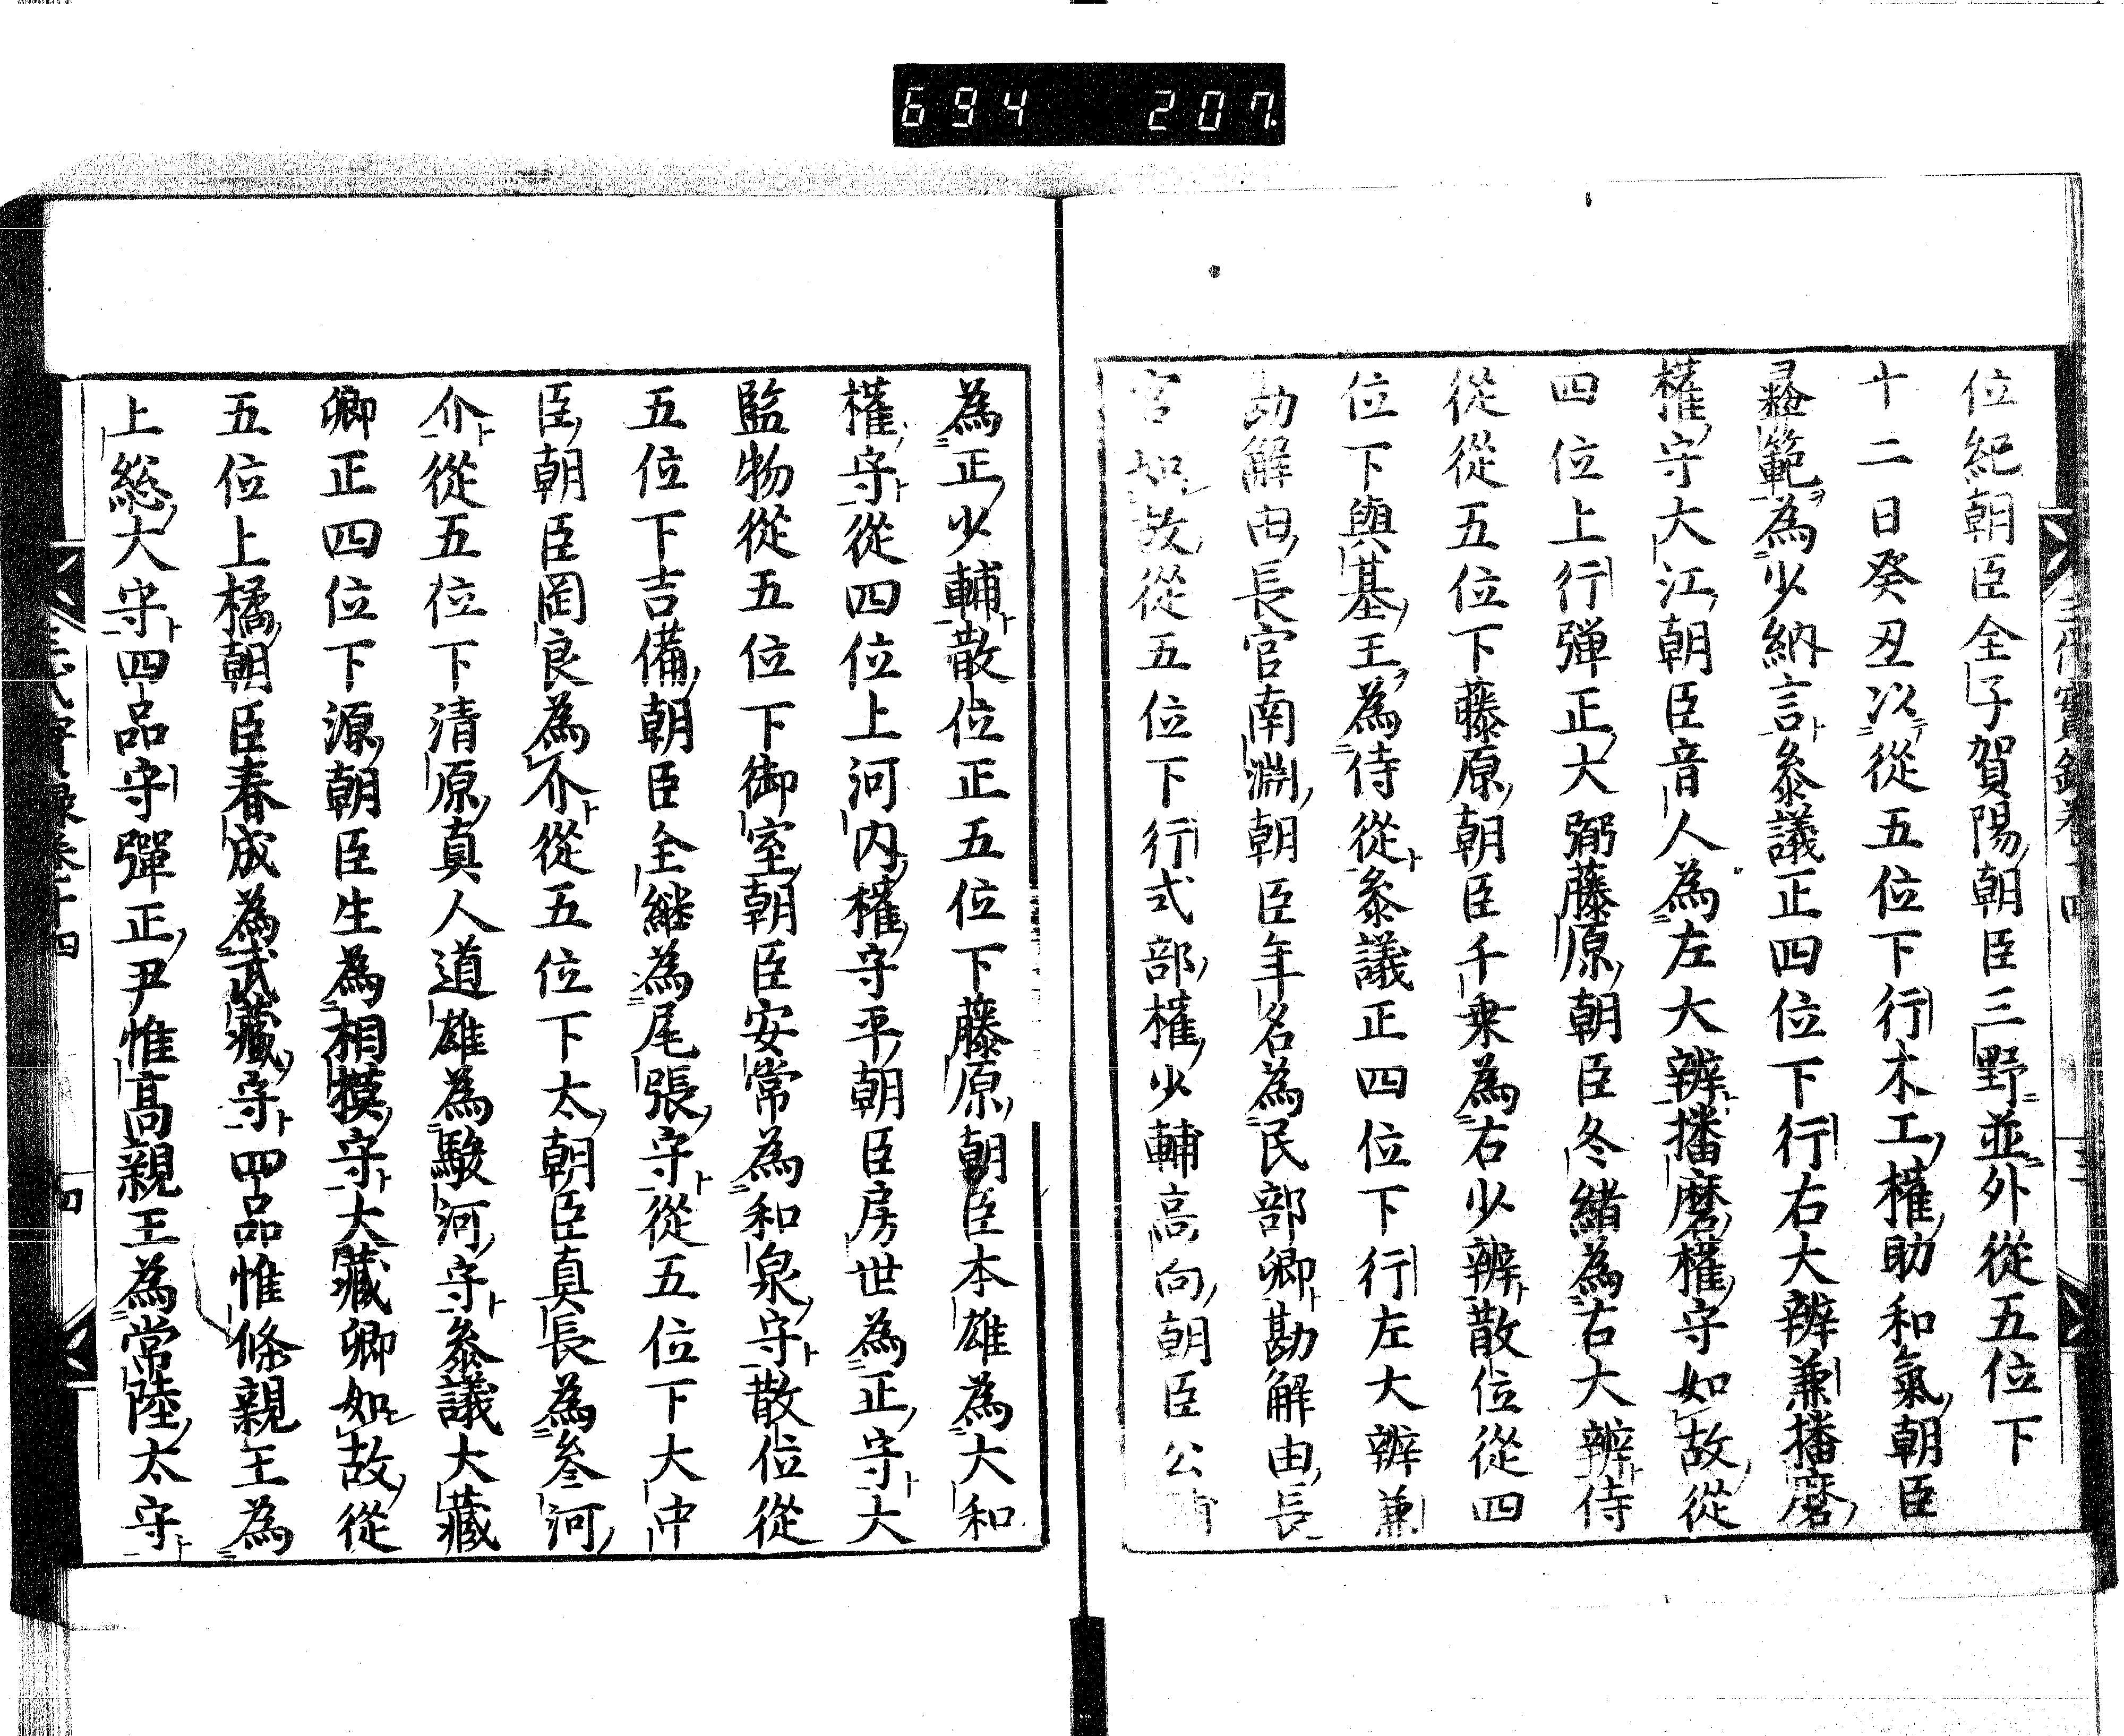 694 207.
位紀朝臣全子賀陽朝臣三野並外從五位下
十二日癸丑以從五位下行木工權助和氣朝臣
彛範為少納言參議正四位下行右大辨兼播磨
權守大江朝臣音人為左大辨播磨權守如故從
四位上行彈正大弼藤原朝臣冬緒為右大辨侍
從從五位下藤原朝臣千乗為右少辨散位從四
位下與基王為侍從參議正四位下行左大辨兼
勘解由長官南淵朝臣年名為民部卿勘解由長
官如故從五位下行式部權少輔高向朝臣公
為正少輔散位正五位下藤原朝臣本雄為大和
權守從四位上河内權守平朝臣房世為正守大
監物從五位下御室朝臣安常為和泉守散位從
五位下吉備朝臣全継為尾張守從五位下大中
臣朝臣罡良為介從五位下太朝臣真長為參河
介從五位下清原真人道雄為駿河守參議大藏
卿正四位下源朝臣生為相摸守大藏卿如故從
五位上橘朝臣春成為武藏守四品惟條親王為
上総大守四品守彈正尹惟髙親王為常陸太守
三代實録卷十四
四